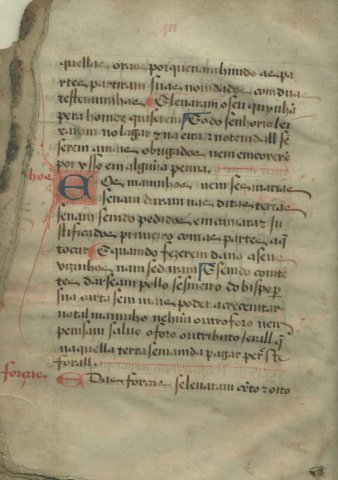 quellas oras porque nam hindo as pa
rtes partiram suas nouidades com dua
testemunhas E leuaram o seu quynhã
pera homde quiserem E o do senhorio lei
xaram no lagar z na eira z notem dall se
serem a mais obrigados nem emcorerẽ
por ysso em algũa penna.
E Os maninhos nem sesmarias
senam daram nas ditas terras
senam semdo pedidos em camara z ju
stificados primeiro com as partes a q̃
tocar E quando fezerem dano a seus
vizinhos nam se daram E semdo comtẽ
tes darseam pello sesmeiro do bispo per
sua carta sem mais poder acrecentar
no tal maninho nehuũ outro foro nem
pensam saluo o foro ou tributo ierall q̃
naquella terra se manda pagar per este
forall.
forças
Das forças se leuaram cẽto z oito